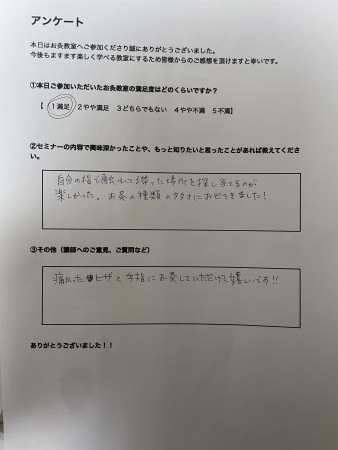 アンケート
本日はお灸教室へご参加くださり誠にありがとうございました。
今後もますます楽しく学べる教室にするため皆様からのご感想を頂けますと幸いです。
①本日ご参加いただいたお灸教室の満足度はどのくらいですか？
【 １満足 ２やや満足 ３どちらでもない ４やや不満 ５不満】
②セミナーの内容で興味深かったことや、もっと知りたいと思ったことがあれば教えてくださ
い。
自分の指で触れて滞った場所を探し当てるのが
楽しかった。お灸の種類の多さにおどろきました！
③その他（講師へのご意見、ご質問など）
痛かったヒザと手指にお灸していただけて嬉しいです!!
ありがとうございました！！